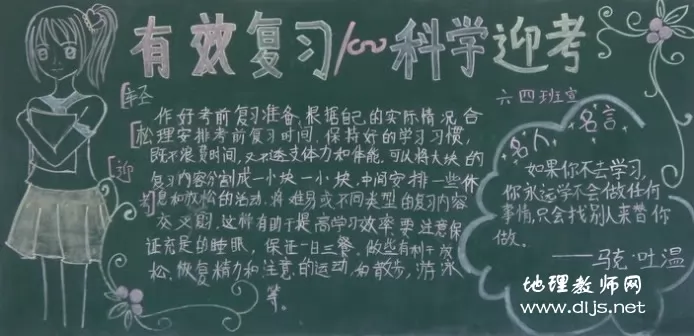 有效复习 科学迎考
六四班宣
轻
松
迎
考
作好考前复习准备,根据自己的实际情况合
理安排考前复习时间,保持好的学习习惯,
既不浪费时间,又不透支体力和体能,可以将大块的
复习内容分割成一小块一小块,中间安排一些休
息和放松的活动,将难易或不同类型的复习内容
交叉翻,这样有助于提高学习效率.要注意保
证充足的睡眠,保证一日三餐,做些有利于放
松、恢复精力和注意的运动,如散步,游泳
等。
名人名言
如果你不去学习,
你永远学不会做任何
事情,只会找别人来替你
做。
——马克·吐温
地理教师网
www.dljs.net